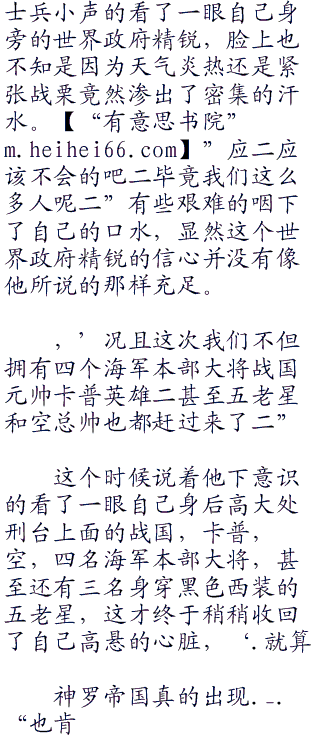 士兵小声的看了一眼自己身
旁的世界政府精锐，脸上也
不知是因为天气炎热还是紧
张战栗竟然渗出了密集的汗
水。【“有意思书院”
m.heihei66.com】”应二应
该不会的吧二毕竟我们这么
多人呢二”有些艰难的咽下
了自己的口水，显然这个世
界政府精锐的信心并没有像
他所说的那样充足。
，’况且这次我们不但
拥有四个海军本部大将战国
元帅卡普英雄二甚至五老星
和空总帅也都赶过来了二”
这个时候说着他下意识
的看了一眼自己身后高大处
刑台上面的战国，卡普，
空，四名海军本部大将，甚
至还有三名身穿黑色西装的
五老星，这才终于稍稍收回
了自己高悬的心脏，‘.就算
神罗帝国真的出现._.
“也肯